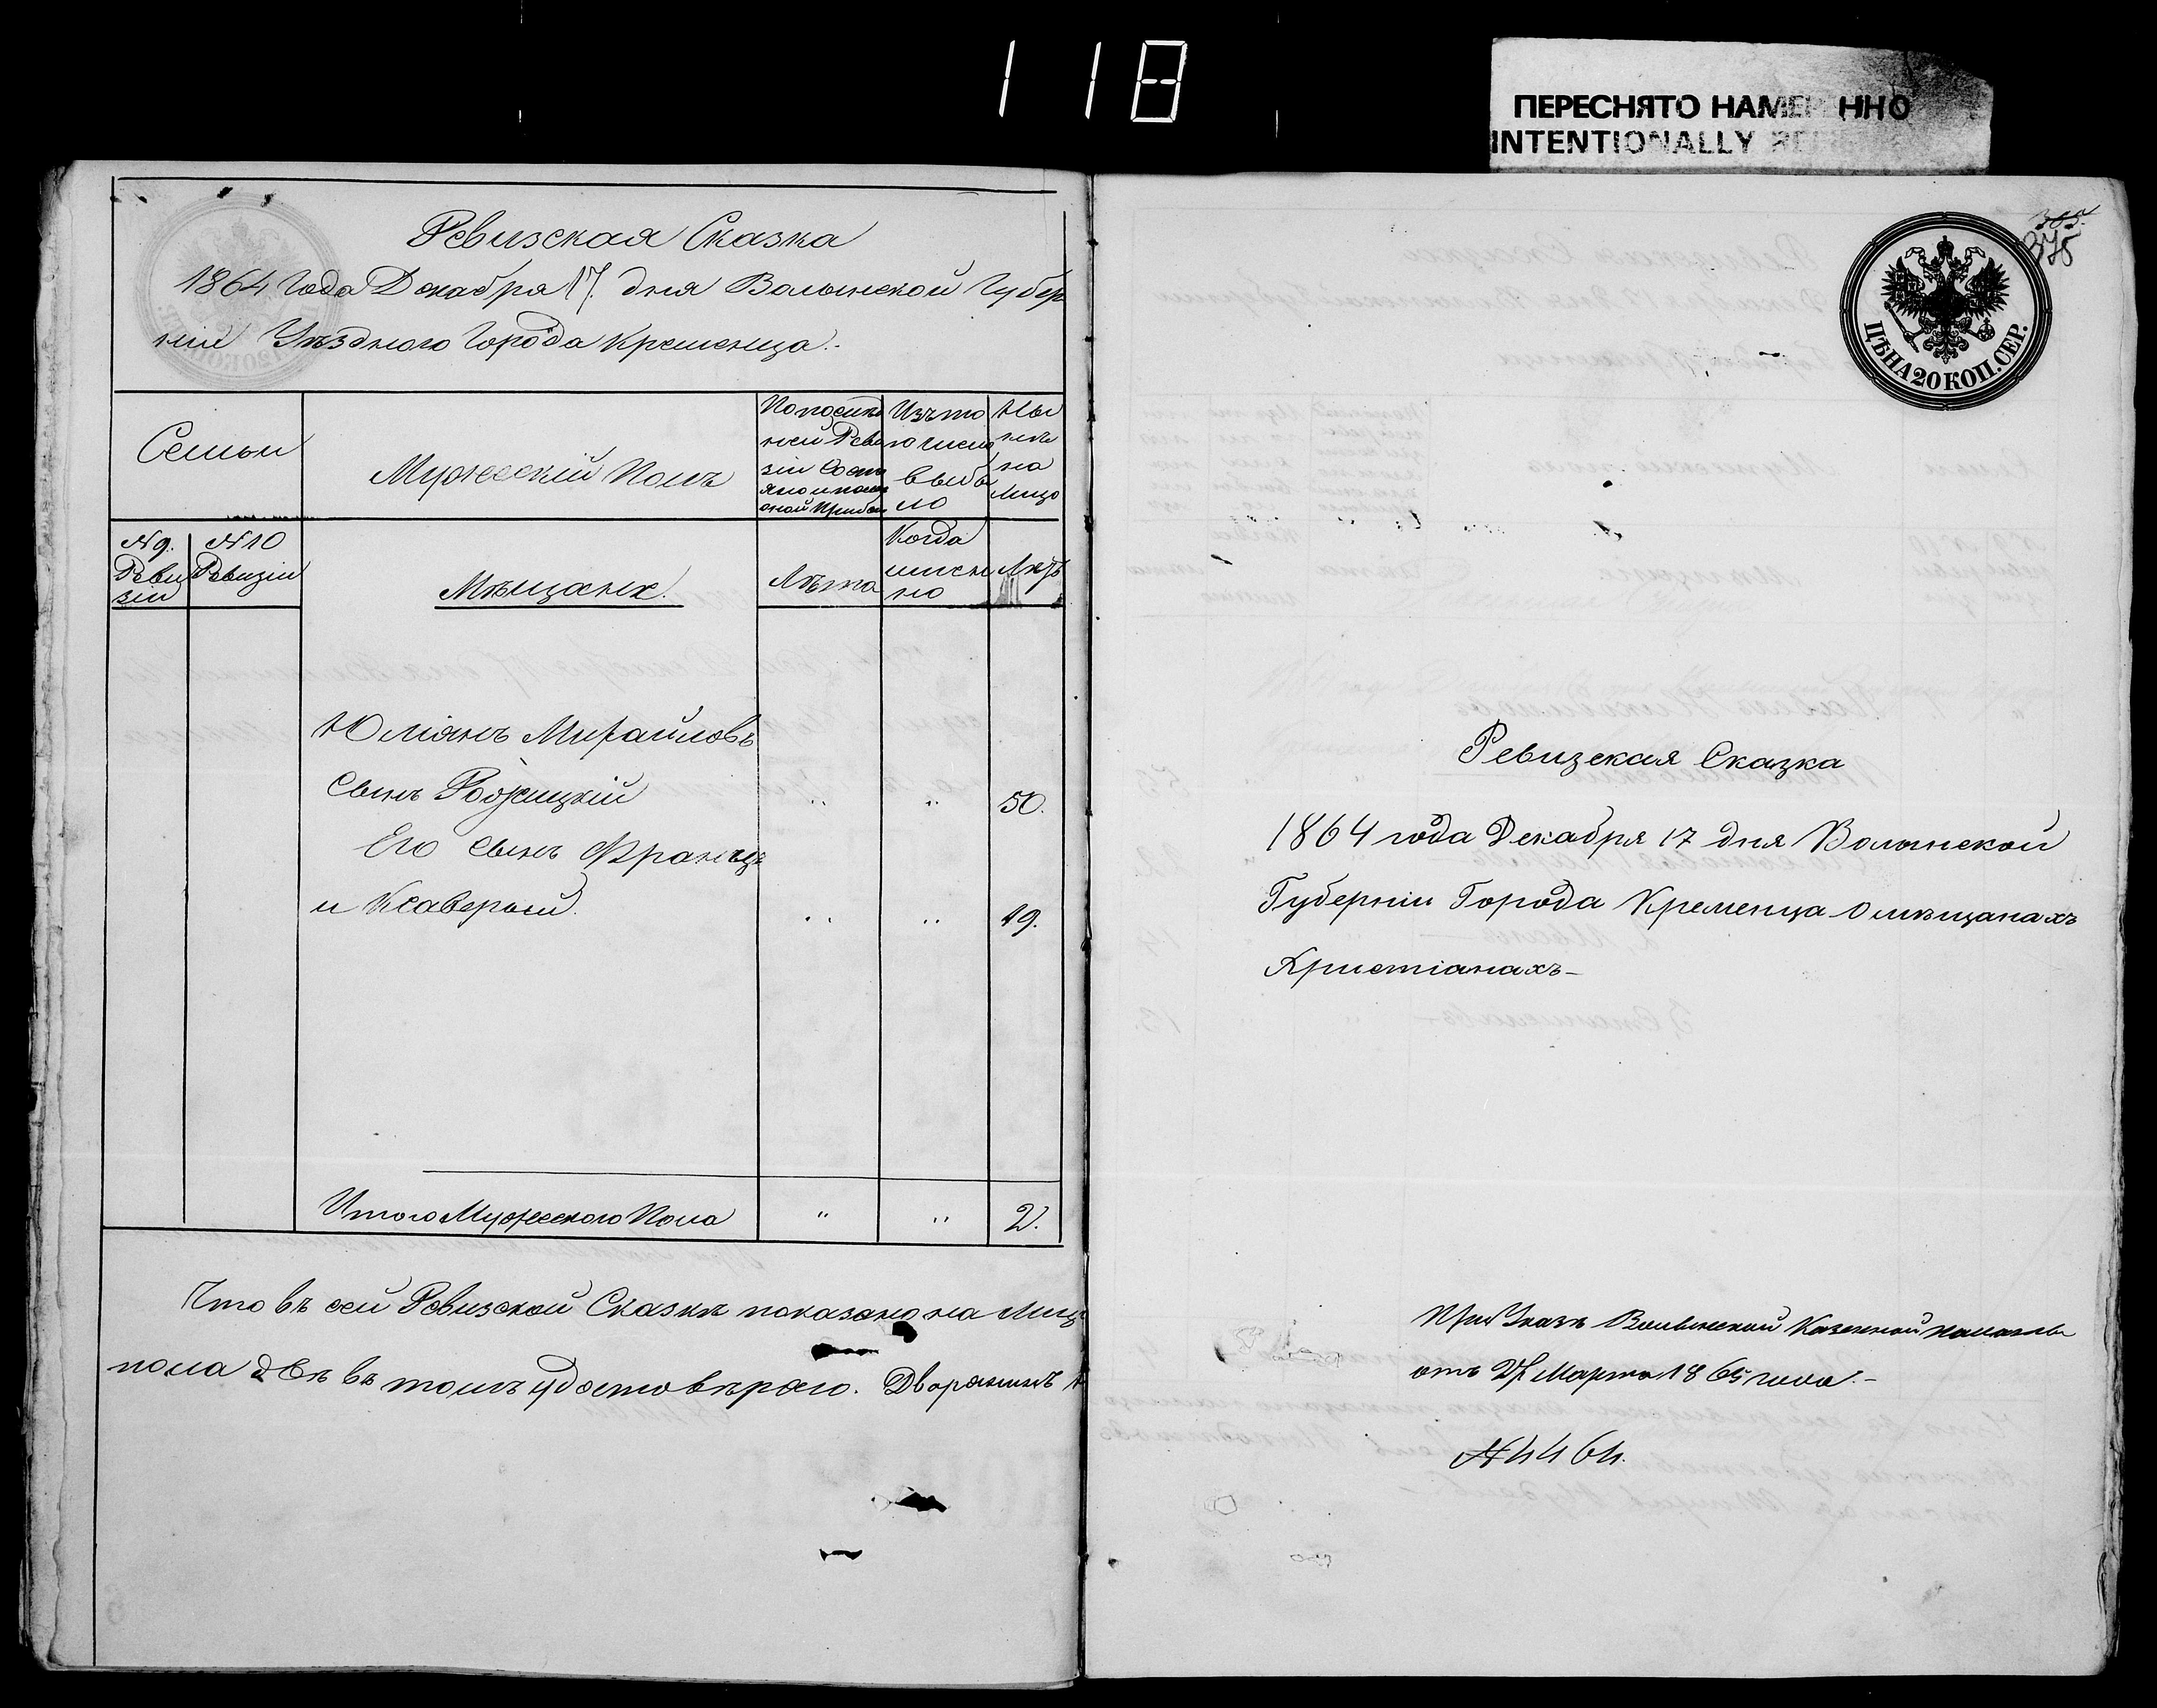 118
ПЕРЕСНЯТО НАМЕРЕННО
INTENTIONALLY
Ревизская Сказка
1864 Года Декабря 17. дня Волынской Губер
ніи Уѣзднаго Города Кременца.
Семьи
Мужескій Полъ
По послѣд
ней Реви
зіи Состо
Изъ то
го числа
выбы
ло
Ны
нѣ
на
Лицо
№ 9.
Реви
зіи
№ 10
Ревизіи
Мѣщане.
Лѣта
Когда
имен
но
Лѣтъ
Юліянъ Михайловъ
Сынъ Родзицкій 50.
Его Сынъ Францъ
и Ксаверый. 19.
Итого Мужескаго Пола 2.
Что въ сей Ревизской Сказкѣ показано на Лиц
пола двѣ въ томъ удостовѣряю. Дворянинъ
305.
375
ЦѢНА 20 КОП. СЕР.
Ревизская Сказка
1864 года Декабря 17 дня Волынской
Губерніи Города Кременца О мѣщанахъ
Христіанахъ
При Указѣ Волынской Казенной палаты
отъ Марта 1865 года.
№ 4464.